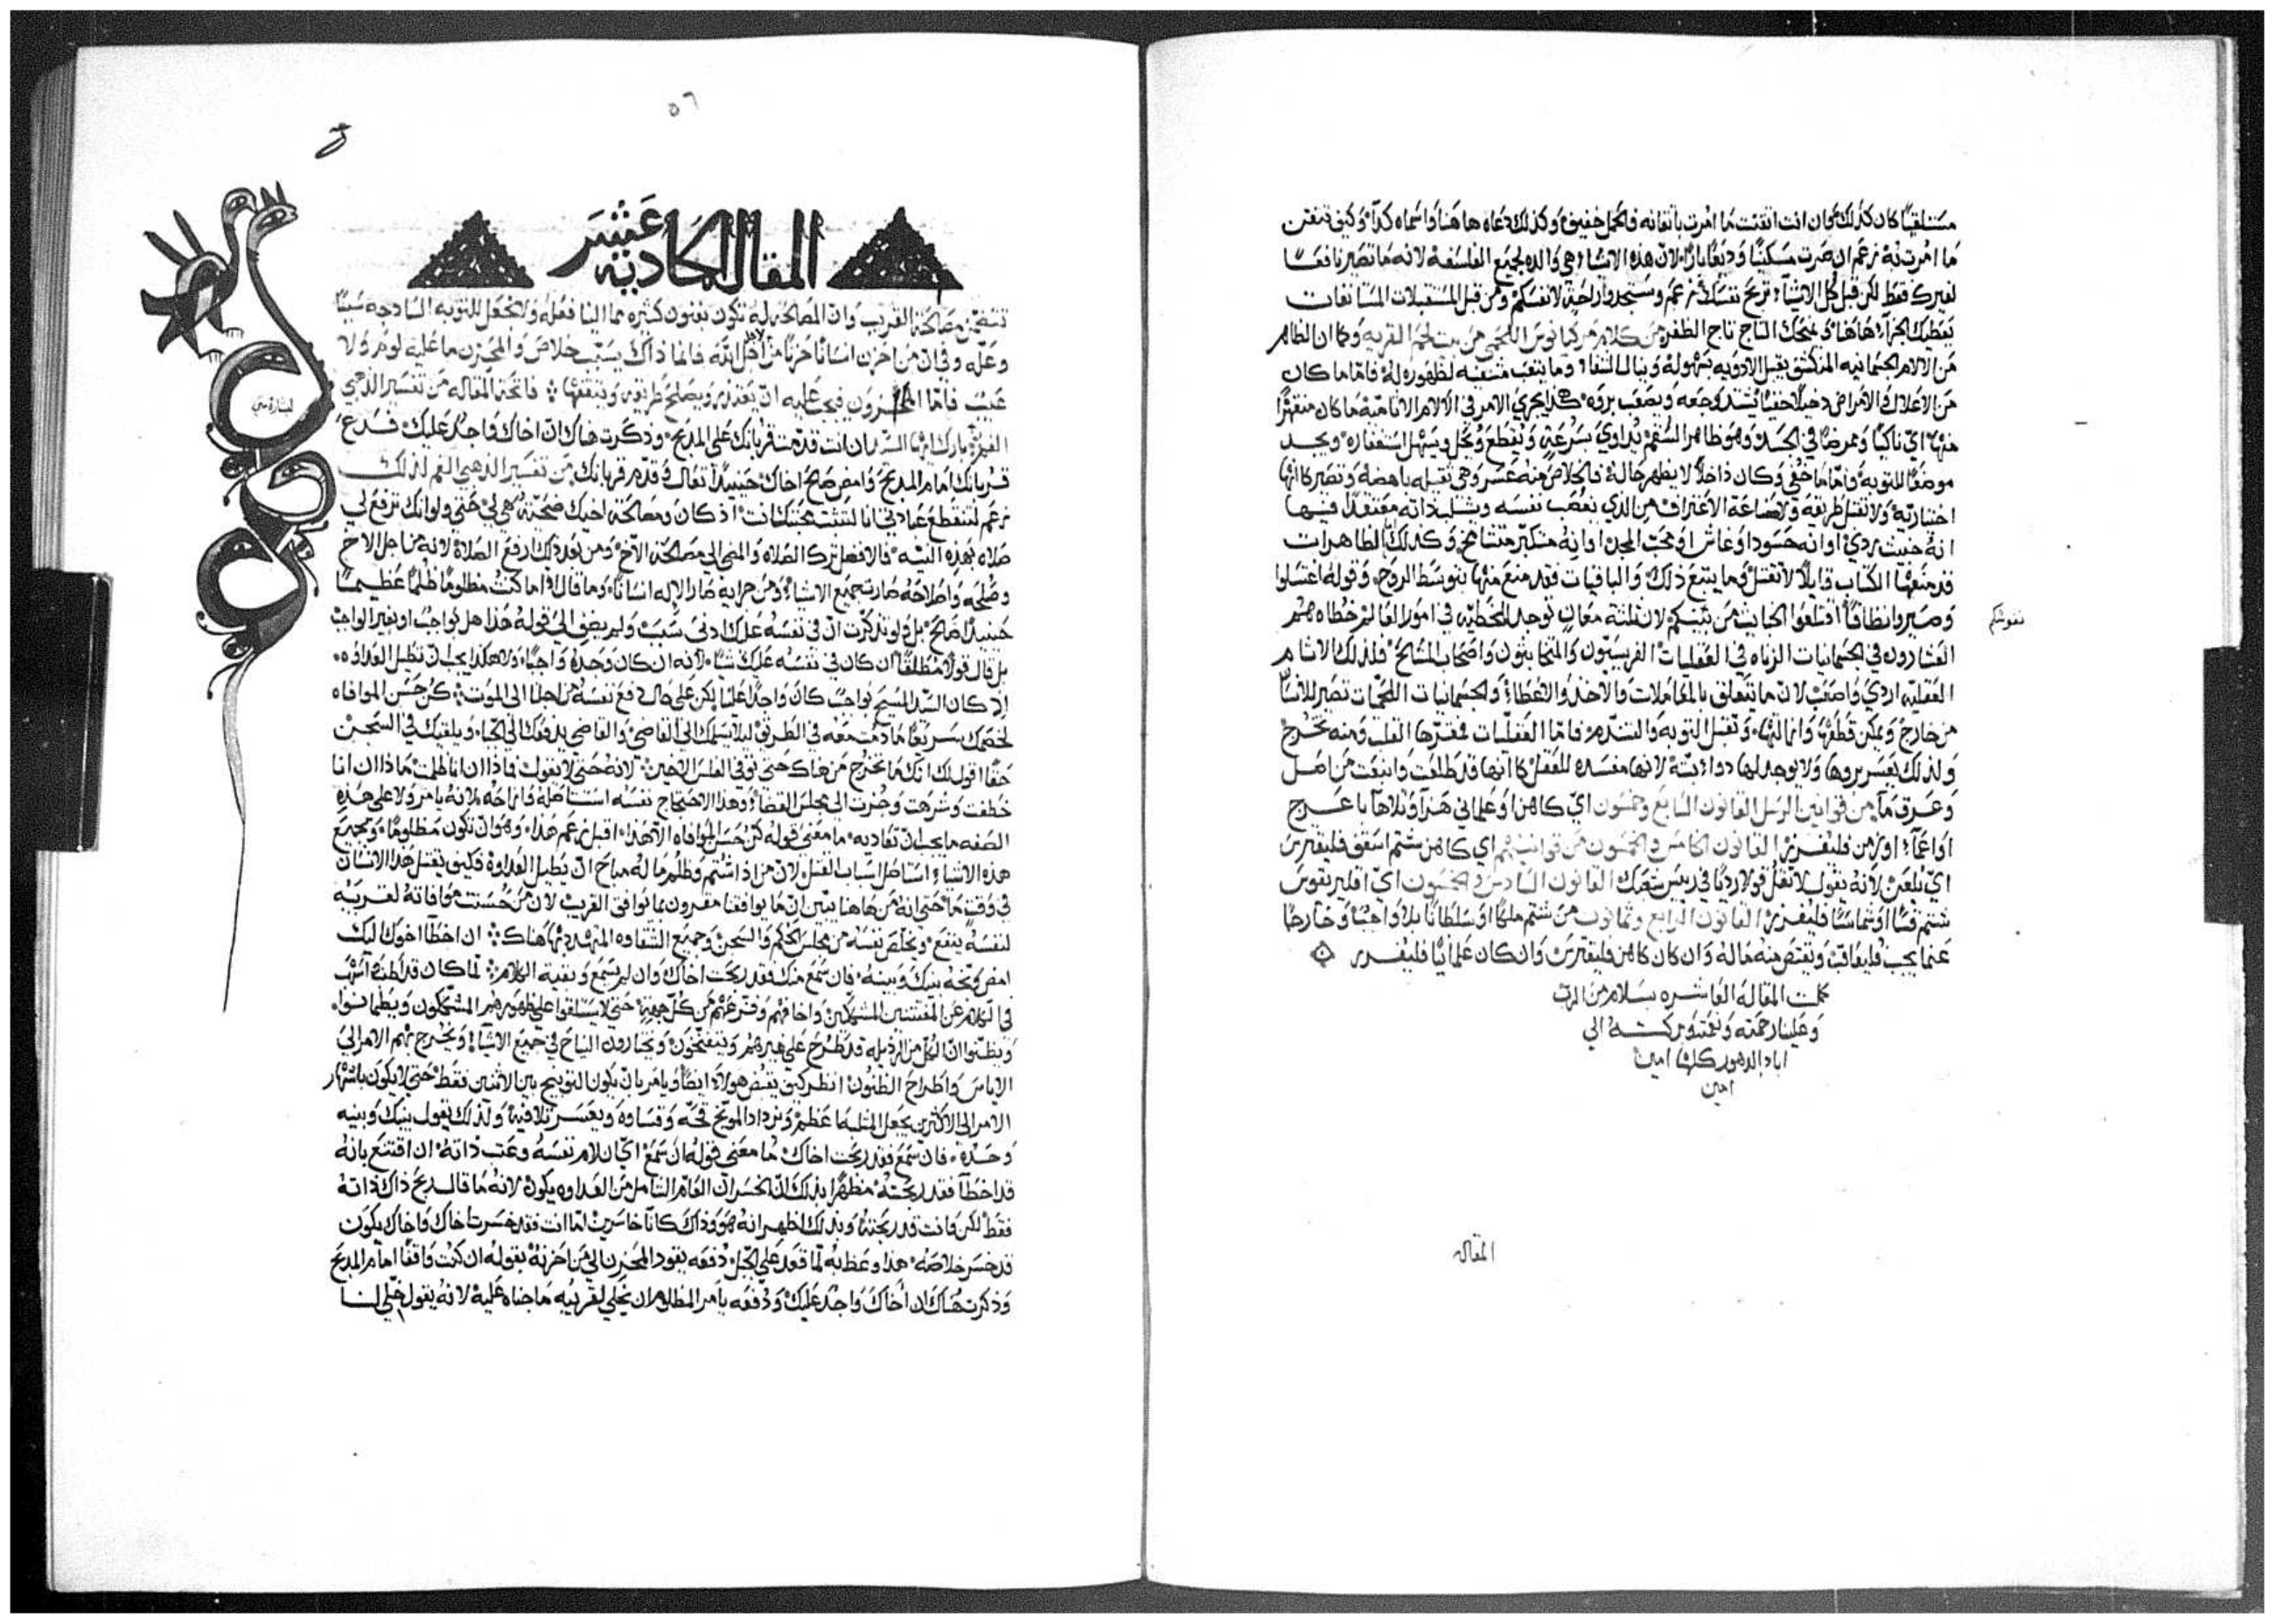 مستلقيًا كان كذلك وان انت اتقنت ما امرت باتقانه فالحمل خفيف وكذلك دعاه هاهنا واسماه كذا وكيف تتقن
ما امرت به زعم ان صرت مسكينًا وديعًا بارًا لان هذه الاشيا هي والده لجميع الفلسفة لانه ما تصير نافعًا
لغيرك فقط لكن قبل كل الاشيآ تريح نفسك زعم وستجدوا راحة لانفسكم ومن قبل المستقبلات المستانفات
يعطيك الجزآ هاهنا ويمنحك التاج تاج الظفر من كلام مركيانوس اللخمي من بيت لحم القريه وكما ان الظاهر
من الالام الجسمانيه المنكشف يقبل الادويه بسهوله وينال الشفا وما يتعب مشفيه لظهوره له فاما ما كان
من الاعلال والامراض دخيلًا خفيًا يشتد وجعه ويصعب بروه هكذا يجري الامر في الالام الاثامية ما كان
وممرضًا في الجسد وهو ظاهر السقم يداوي بسرعة ويقطع ويحل ويسهل استغفاره ويجد
موضعًا للتوبه واما ما خفي وكان داخلًا لا يظهر حاله فالخلاص منه عسر وهي ثقيله باهضه وتصير كانها
اختياريه ولا تقبل طريقه ولا صناعة الاعتراف من الذي يغصب نفسه ويثلب ذاته معتقدًا فيها
انه خبيث ردي او انه حسود او غاش او محب المجد او انه متكبر متشامخ وكذلك الظاهرات
قد منعها الكتاب قايلًا لا تقتل وما يتبع ذلك والباقيات فقد منع منها بتوسط الروح وقوله اغتسلوا
وصيروا نظافًا اقلعوا الخبايث من بينكم لان ثلثة معان توجد للخطيه في امور العالم خطاه هم
العشارون في الجسمانيات الزناه في العقليات الفريسيون والمتخابثون واصحاب المشايخ فلذلك الاثام
العقليه اردي واصعب لان ما يتعلق بالمعاملات والاخذ والاعطآ والجسمانيات اللحميات تصير للانسان
من خارج ويمكن قطعها وازالتها وتقبل التوبه والتندم فاما العقليات فمقرها القلب ومنه تخرج
ولذلك يعسر بروها ولا يوجد لها دوا بته لانها مفسده للعقل كانها قد طلعت وانبعت من اصل
وعرق ما من قوانين الرسل القانون السابع وخمسون اي كاهن او علماني هزا وتلاها باعرج
او اعمآ او زمن فليفرز القانون الخامس والخمسون من قوانينهم اي كاهن شتم اسقف فليقترس
اي يلعن لانه يقول لا تقل قولا رديًا في رييس شعبك القانون السادس والخمسون اي اقليريقوس
شتم قسًا او شماسًا فليفرز القانون الرابع وثمانون من شتم ملكًا او سلطانًا بلا واجبًا وخارجًا
عما يجب فليعاقب ويقتص منه ماله وان كان كاهن فليقترس وان كان علمانيًا فليفرز
نفوسكم
كملت المقالة العاشره بسلام من الرب
وعلينا رحمته ونعمته وبركته الي
اباد الدهور كلها امين
امين
المقاله
٥٦
المقاله الحاديه عشر
تتضمن مصالحة القريب وان المصالحة له تكون بفنون كثيره مما الينا فعله ولا نجعل للتوبه الساذجه سببًا
وعله وفي ان من احزن انسانًا حزنًا من اجل الله فانما ذاك يسبب خلاص والمحزن ما عليه لوم ولا
عيب فاما المحزون فيجب عليه ان يعتذر ويصلح طريقه ويتقنها فاتحة المقاله من تفسير الذهبي
لبشارة متي
الفم بارك ايها السيد ان انت قدمت قربانك علي المدبح وذكرت هناك ان اخاك واجد عليك فدع
قربانك امام المدبح وامض صالح اخاك حينيذ تعال وقدم قربانك من تفسير الذهبي الفم لذلك
زعم لتنقطع عبادتي انا لتثبت محبتك انت اذ كان ومصالحة اخيك ضحية هي لي حتي ولو انك ترفع لي
صلاه بهذه النيه فالافضل ترك الصلاه والمضي الي مصالحة الاخ ومن بعد ذلك ارفع الصلاة لانه من اجل الاخ
وصلحه واصلاحه صارت جميع الاشيا ومن جرايه صار الاله انسانًا وما قال اما كنت مظلومًا ظلمًا عظيمًا
حينيذ صالح بل ولو تذكرت ان في نفسه عليك ادني سبب ولم يضف الي قوله هذا هل بواجب او بغير الواجب
بل قال قولًا مطلقًا ان كان في نفسه عليك شيا لانه ان كان وجده واجبًا ولا هكذا يجب ان تطيل العداوه
اذ كان السيد المسيح بواجب كان واجدًا علينا لكن علي حال دفع نفسه من اجلنا الي الموت كن حسن الموافاه
لخصمك سريعًا ما دمت معه في الطريق ليلا يسلمك الي القاضي والقاضي يدفعك الي الجباه ويلقيك في السجن
حقًا اقول لك انك ما تخرج من هناك حتي توفي الفلس الاخير لانه حتي لا يقول فماذا ان انا ظلمت ماذا ان انا
خطفت وشرهت وجزت الي مجلس القضآ وهذا الاحتجاج نفسه استاصله وازاحه لانه يامر ولا علي هذه
الصفه ما يجب ان تعاديه ما معني قوله كن حسن الموافاه الآ هذا اقبل زعم هذا وهو ان تكون مظلومًا وبجميع
هذه الاشيا استاصل اسباب القتل لان من اذا شتم وظلم ما له مباح ان يطيل العداوة فكيف يقتل هذا الانسان
في وقت ما حتي انه من هاهنا يبين ان ما يوافقنا مقرون بما يوافق القريب لان من حسنت موافاته لقريبه
لنفسه ينفع ويخلص نفسه من مجلس الحكم والسجن وجميع الشقاوه المتهدد بها هناك ان اخطآ اخوك اليك
امض وبخه بينك وبينه فان سمع منك فقد ربحت اخاك وان لم يسمع وبقية الكلام لما كان قد اطنب واسهب
في الكلام عن المفتنين المشككين واخافهم وفزعهم من كل جهة حتي لا يستلقوا علي ظهورهم المشككون ويطمانوا
ويظنوا ان الكل من الرذيله قد طرح علي غيرهم ويتفتحون ويختارون النياح في جميع الاشيآ ويخرج بهم الامر الي
الاياس واطراح الظنون انظر كيف يقبض هولاء ايضًا ويامر بان يكون التوبيخ بين الاثنين فقط حتي لا يكون باشهار
الامر الي الاكثرين يجعل الثلب ما عظم وتزداد الموبخ قحه وقساوه ويعسر تلافيه ولذلك يقول بينك وبينه
وحده فان سمع فقد ربحت اخاك ما معني قوله ان سمع اي ان لام نفسه وعتب ذاته ان اقتنع بانه
قد اخطآ فقد ربحته مظهرًا بذلك ان الخسران العام الشامل من العداوه يكون لانه ما قال ربح ذاك ذاته
فقط لكن وانت قد ربحته وبذلك اظهر انه هو وذاك كانا خاسرين اما انت فقد خسرت اخاك واخاك يكون
قد خسر خلاصه هذا وعظ به لما قعد علي الجبل دفعه يقود المحزن الي من احزنه بقوله ان كنت واقفًا امام المدبح
وذكرت هناك ان اخاك واجد عليك ودفعه يامر المظلوم ان يخلي لقريبه ما جناه عليه لانه يقول خلي لنا